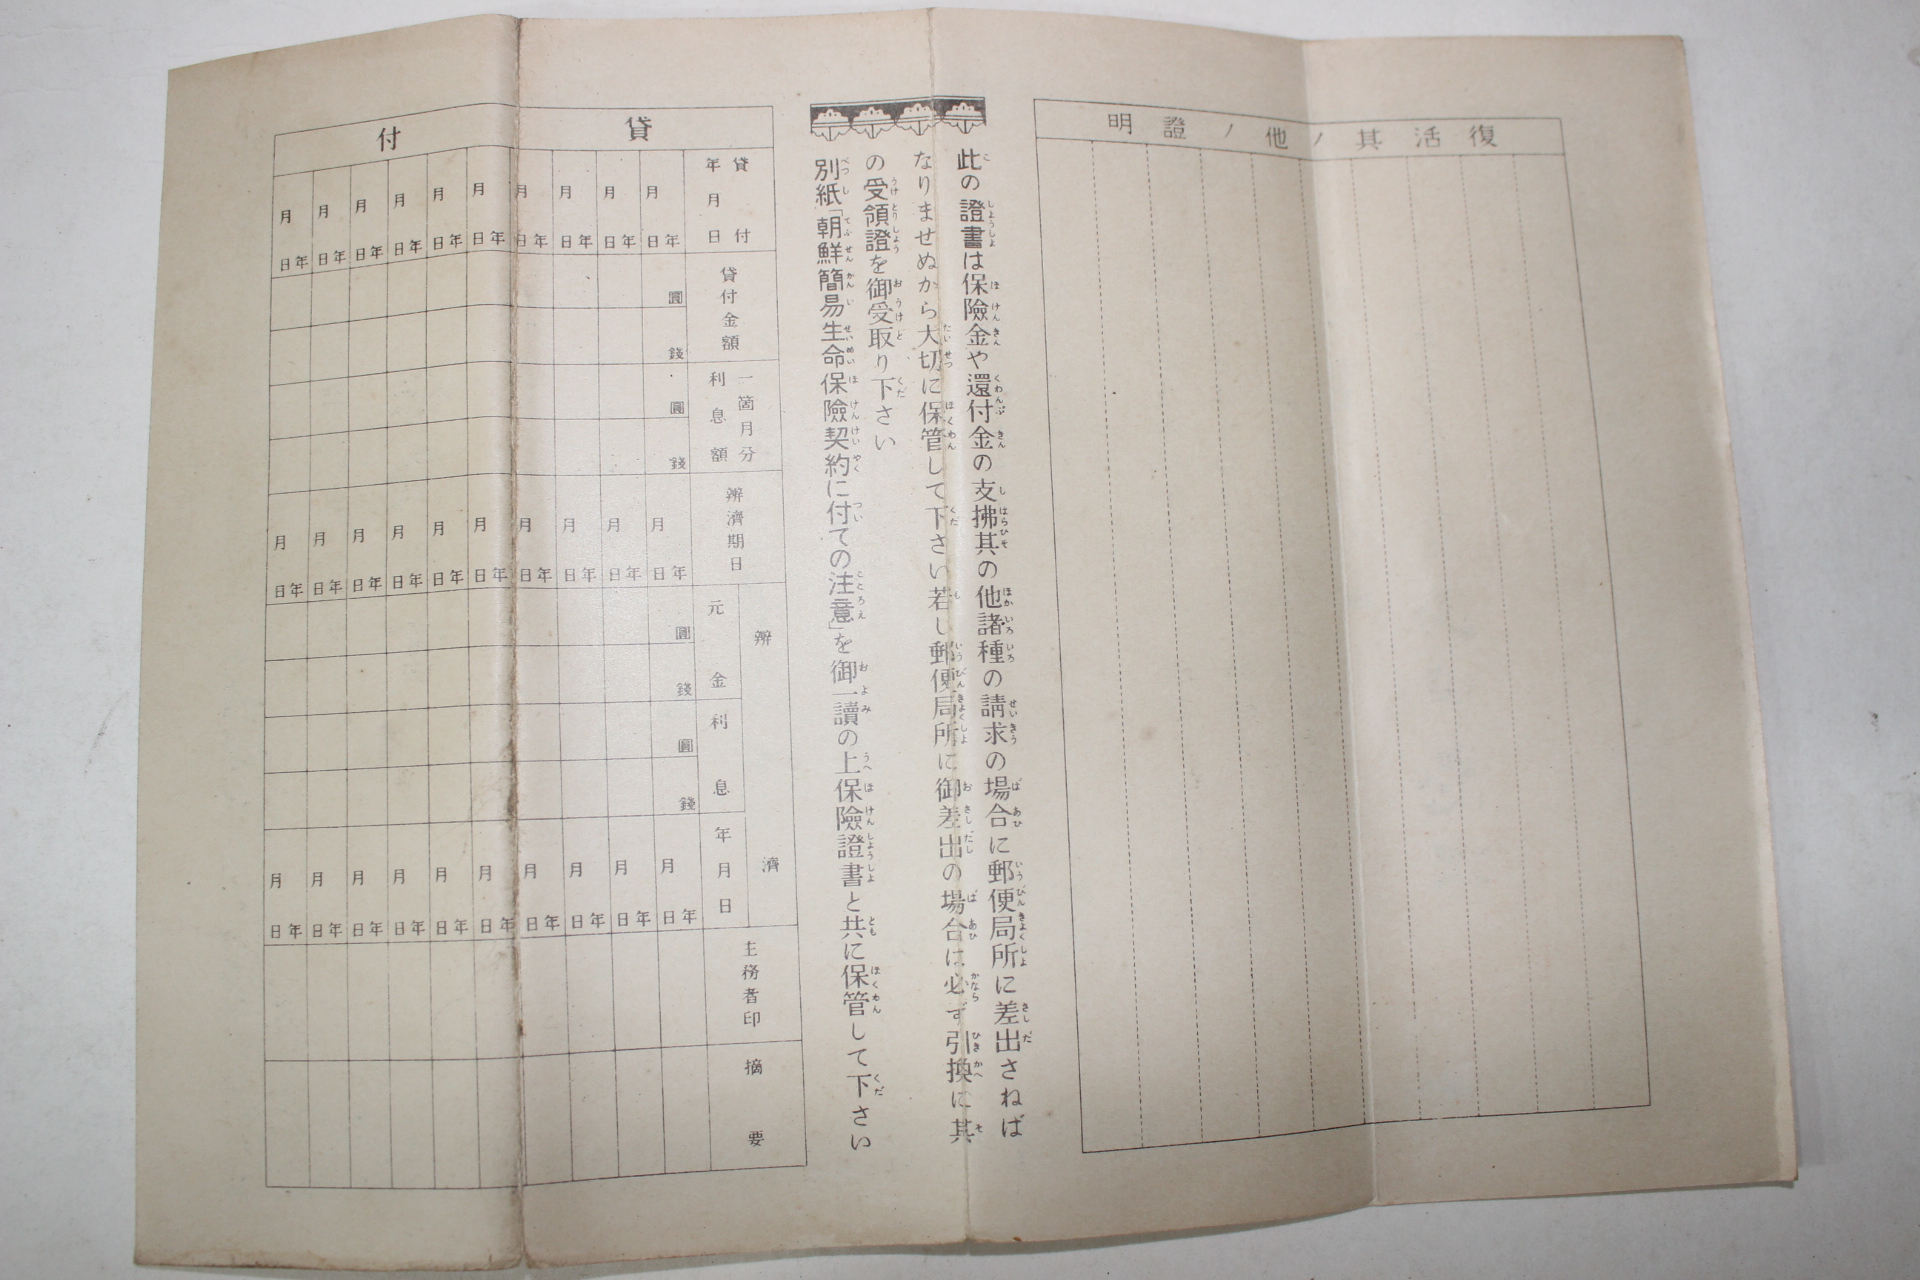 復活其ノ他ノ證明
此の證書は保險金や還付金の支拂其の他諸種の請求の場合に郵便局所に差出さねば
なりませぬから大切に保管して下さい若し郵便局所に御差出の場合は必ず引換に其
の受領證を御受取り下さい
別紙「朝鮮簡易生命保險契約に付ての注意」を御一讀の上保險證書と共に保管して下さい
貸付
貸付年月日
年月日 年月日 年月日 年月日 年月日 年月日 年月日 年月日 年月日
貸付金額
圓
錢
一箇月分利息額
圓
錢
辨濟期日
年月日 年月日 年月日 年月日 年月日 年月日 年月日 年月日 年月日
辨濟
元金
圓
錢
利息
圓
錢
年月日
年月日 年月日 年月日 年月日 年月日 年月日 年月日 年月日 年月日
主務者印
摘要